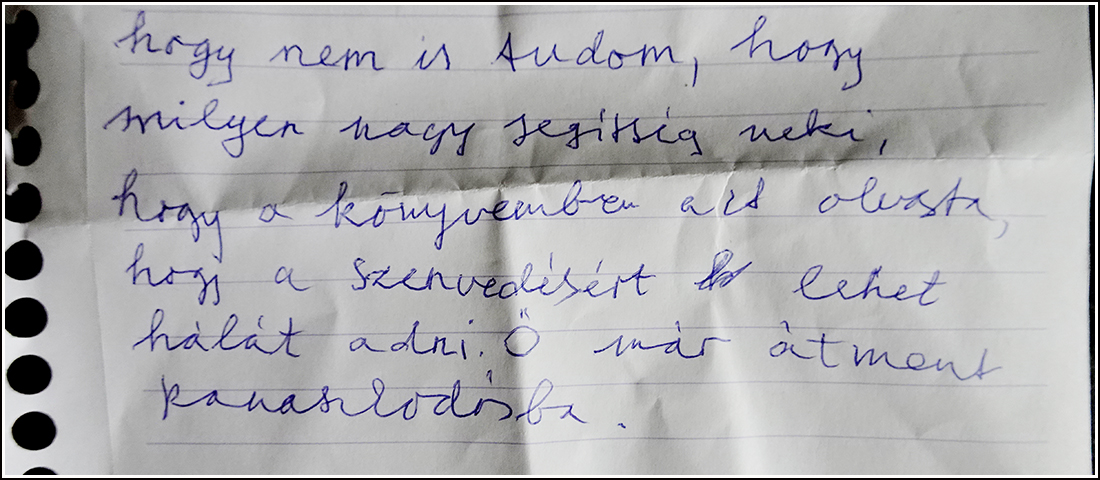 hogy nem is tudom, hogy
milyen nagy segítség neki,
hogy a könyvemben azt olvasta,
hogy a szenvedésért is lehet
hálát adni. Ő már átment
panaszkodásba.